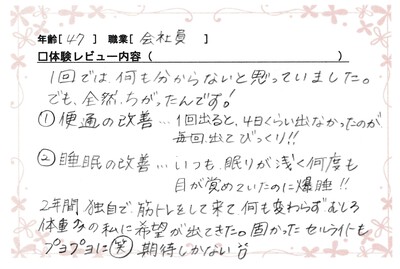 年齢[ 47 ] 職業[ 会社員 ]
□体験レビュー内容（ ）
1回では何も分からないと思っていました。
でも、全然ちがったんです！
①便通の改善…1回出ると、4日くらい出なかったのが
毎回出てびっくり!!
②睡眠の改善…いつも眠りが浅く何度も
目が覚めていたのに爆睡!!
2年間独自で筋トレをして来て何も変わらずむしろ
体重みの私に希望が出てきた。固かったセルライトも
プヨプヨに(笑)期待しかない